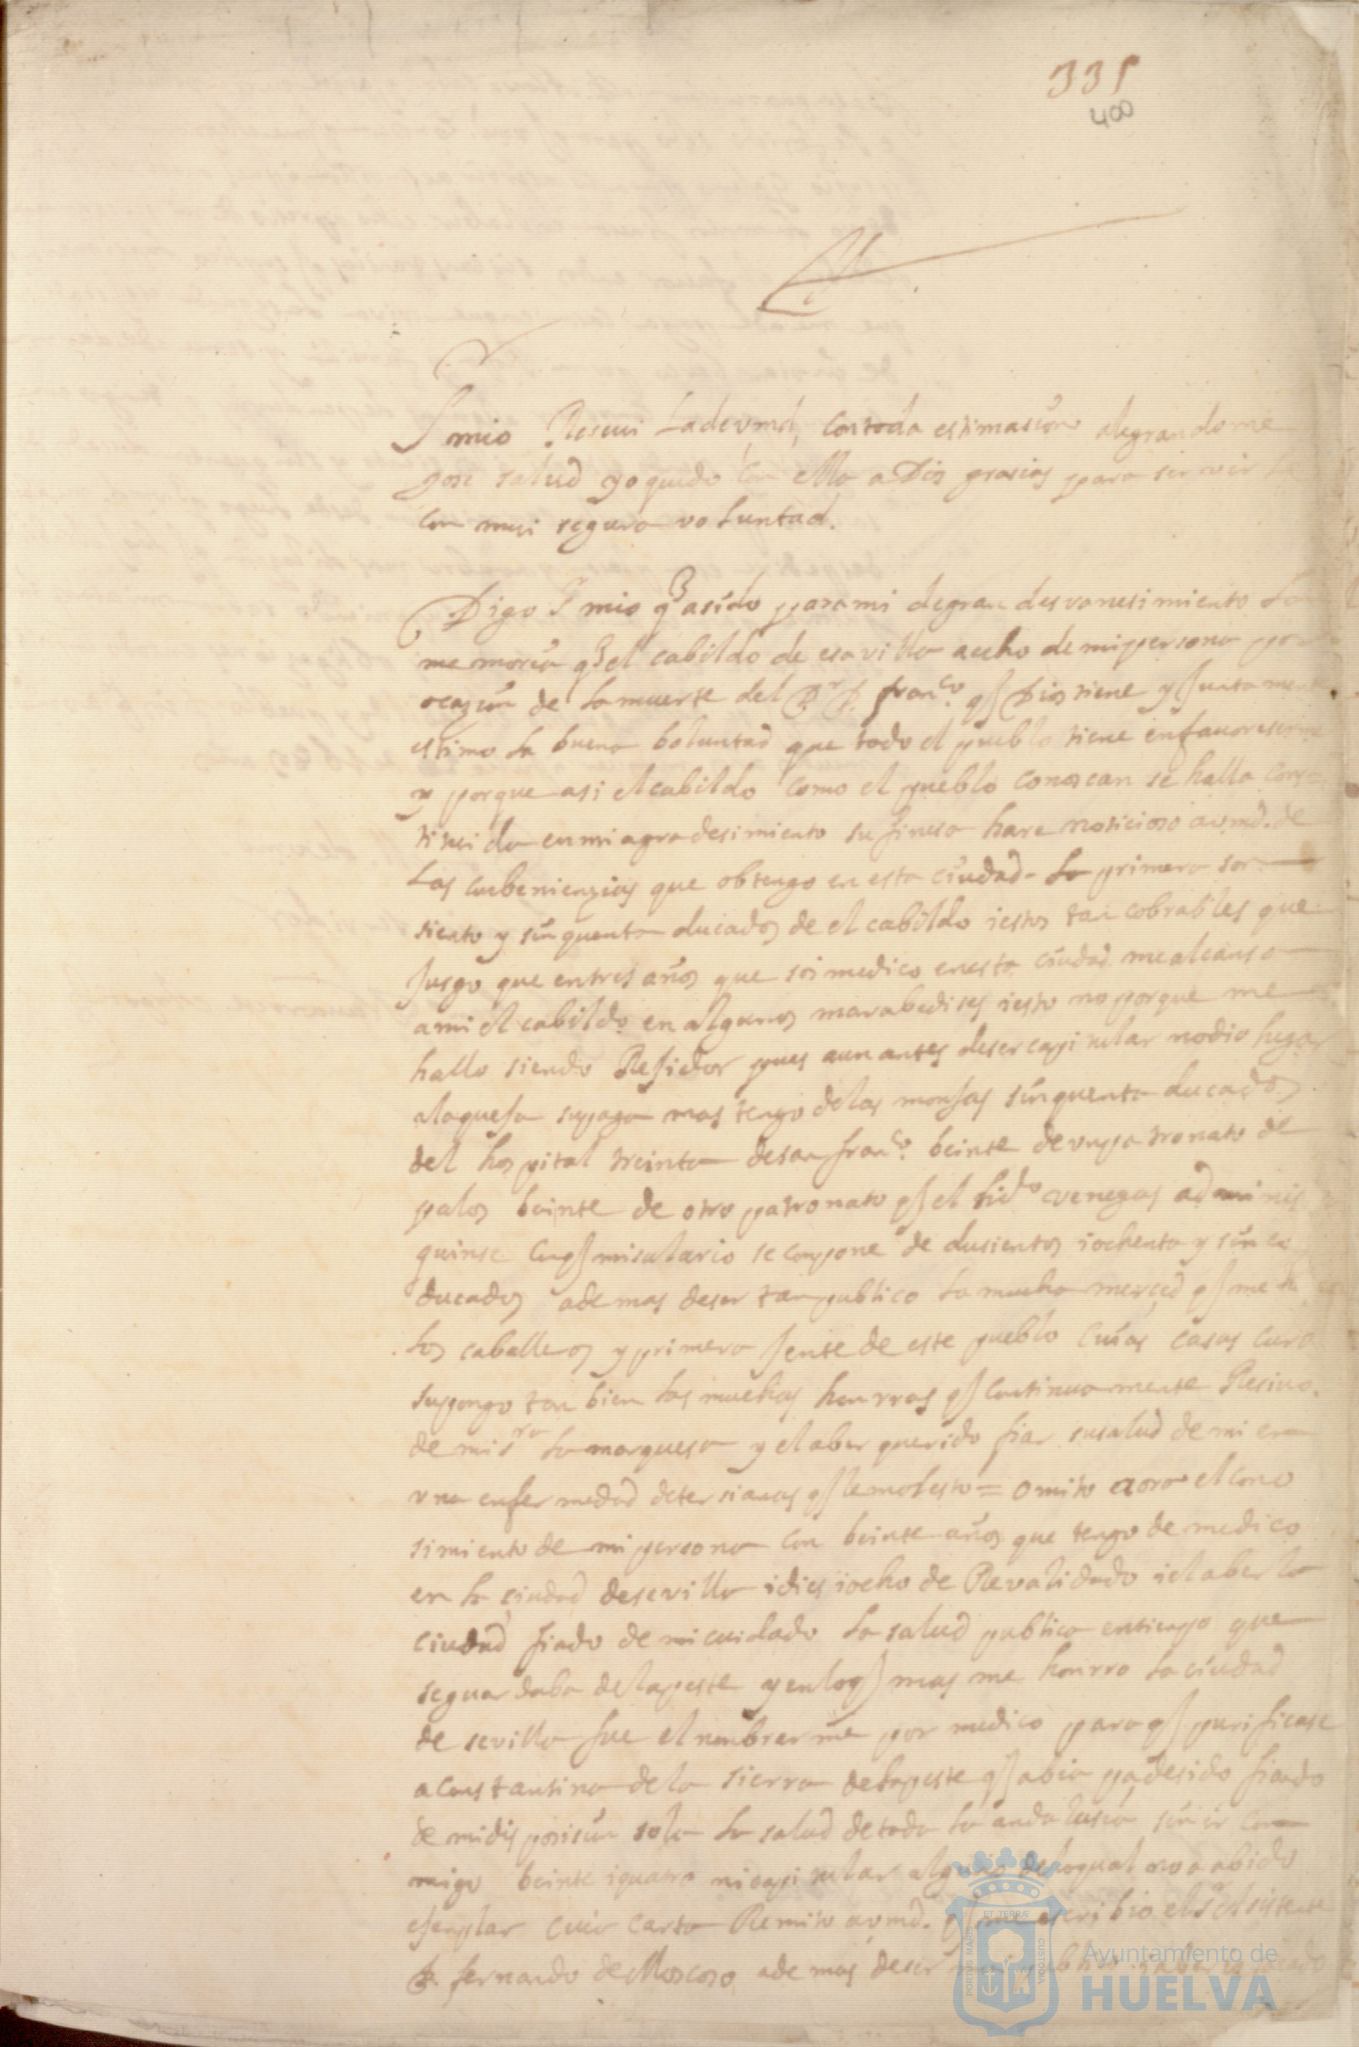 331
400
Sr mio Reseui la de vmd, con toda estimasion alegrandome
gose salud yo quedo con ella a Dios grasias para servirle
con mui segura voluntad.
Digo Sr mio q̃ a sido para mi de gran desvanesimiento la
memoria q̃ el cabildo de esa villa a echo de mi persona por
ocasion de la muerte del Dr D. franco. q̃ Dios tiene y juntamente
estimo la buena boluntad que todo el pueblo tiene en fauoreserme
y porque asi el cabildo como el pueblo conoscan se halla cons
tituida en mi agradesimiento su finesa hare notisioso a vmd. de
las conbenienzias que obtengo en esta ciudad - la primera son
siento y sinquenta ducados de el cabildo i estos tan cobrables que
jusgo que en tres años que soi medico en esta ciudad me alcansa
a mi el cabildo en algunos marabedises i esto no porque me
hallo siendo Rejidor pues aun antes de ser capitular no dio lugar
a la quexa su paga mas tengo de las monjas sinquenta ducados
del hospital treinta de san franco. beinte de un patronato de
palos beinte de otro patronato q̃ el lido venegas adminis
quinse con q̃ mi salario se compone de dusientos i ochenta y sinco
ducados ademas de ser tan publico la mucha merced q̃ me ha
los caballeros y primera jente de este pueblo cuias casas curo
supongo tan bien las muchas honrras q̃ continuamente Resiuo
de mi sra la marquesa y el aber querido fiar su salud de mi en
una enfermedad de tersianas q̃ le molesto = omito aora el cono
simiento de mi persona con beinte años que tengo de medico
en la ciudad de sevilla i dies i ocho de Revalidado i el aber la
ciudad fiado de mi cuidado la salud publica en tienpo que
se guardaba de la peste y en lo q̃ mas me honrro la ciudad
de sevilla fue el nonbrarme por medico para q̃ purificase
a Constantina de la sierra de la peste q̃ abia padesido fiando
de mi disposision sola la salud de toda la andalusia sin ir con
migo beinte i quatro ni capitular alguno de lo qual no a abido
ejenplar cuia carta Remito a vmd. q̃ me escribio el Sr Asistente
D. fernando de Moscoso, ademas de ser
Ayuntamiento de
HUELVA
PORTUS MARIS
ET TERRÆ
CUSTODIA